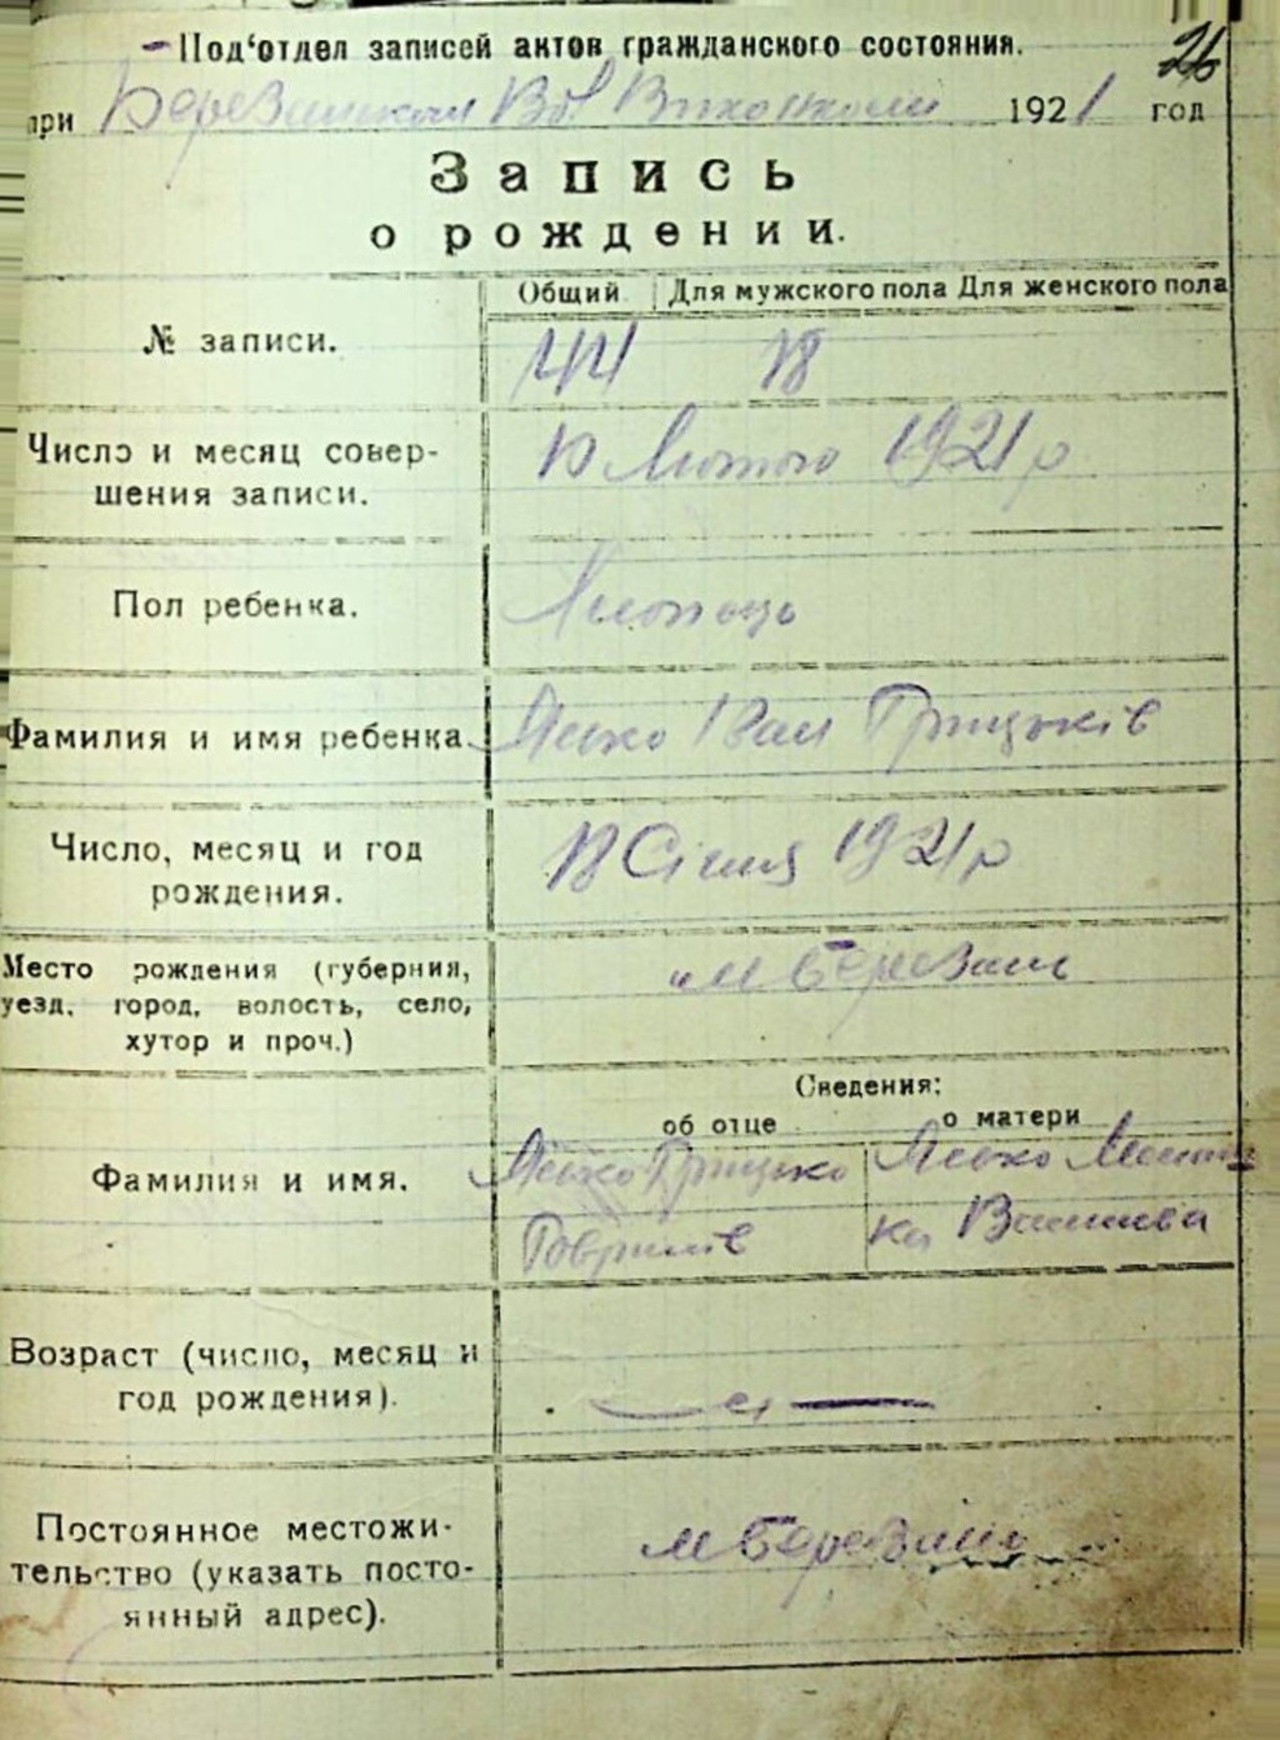 Под‘отдел записей актов гражданского состояния.
26
при Березанском Вол Виконкоми 1921 год
Запись
о рождении.
Общий Для мужского пола Для женского пола
№ записи. 44 18
Число и месяц совер-
шения записи.
10 Лютого 1921 р
Пол ребенка. Хлопець
Фамилия и имя ребенка Іван Грицьків
Число, месяц и год
рождения.
18 Січня 1921 р
Место рождения (губерния,
уезд, город, волость, село,
хутор и проч.)
м Березань
Сведения:
об отце о матери
Фамилия и имя.
Грицько
Гаврилів
ка
Возраст (число, месяц и
год рождения).
Постоянное местожи-
тельство (указать посто-
янный адрес).
м Березань